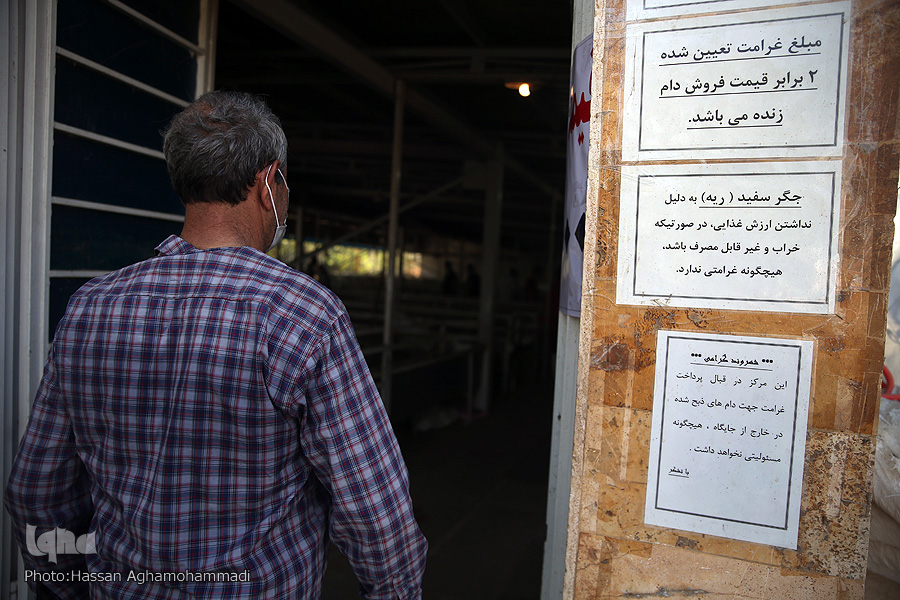 مبلغ غرامت تعیین شده
۲ برابر قیمت فروش دام
زنده می باشد.
جگر سفید ( ریه) به دلیل
نداشتن ارزش غذایی، در صورتیکه
خراب و غیر قابل مصرف باشد،
هیچگونه غرامتی ندارد.
*** شهروند گرامی ***
این مرکز در قبال پرداخت
غرامت جهت دام های ذبح شده
در خارج از جایگاه ، هیچگونه
مسئولیتی نخواهد داشت .
با تشکر
iqna
Photo:Hassan Aghamohammadi